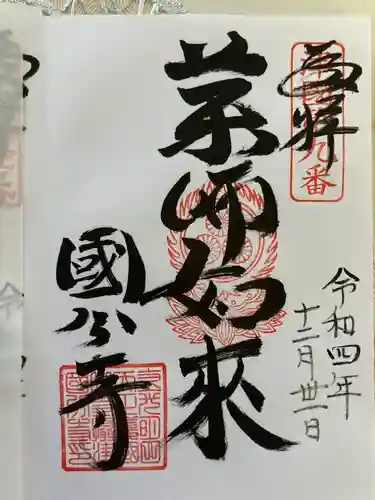 奉拝
九番
令和四年
十二月卅一日
薬師如來
國分寺